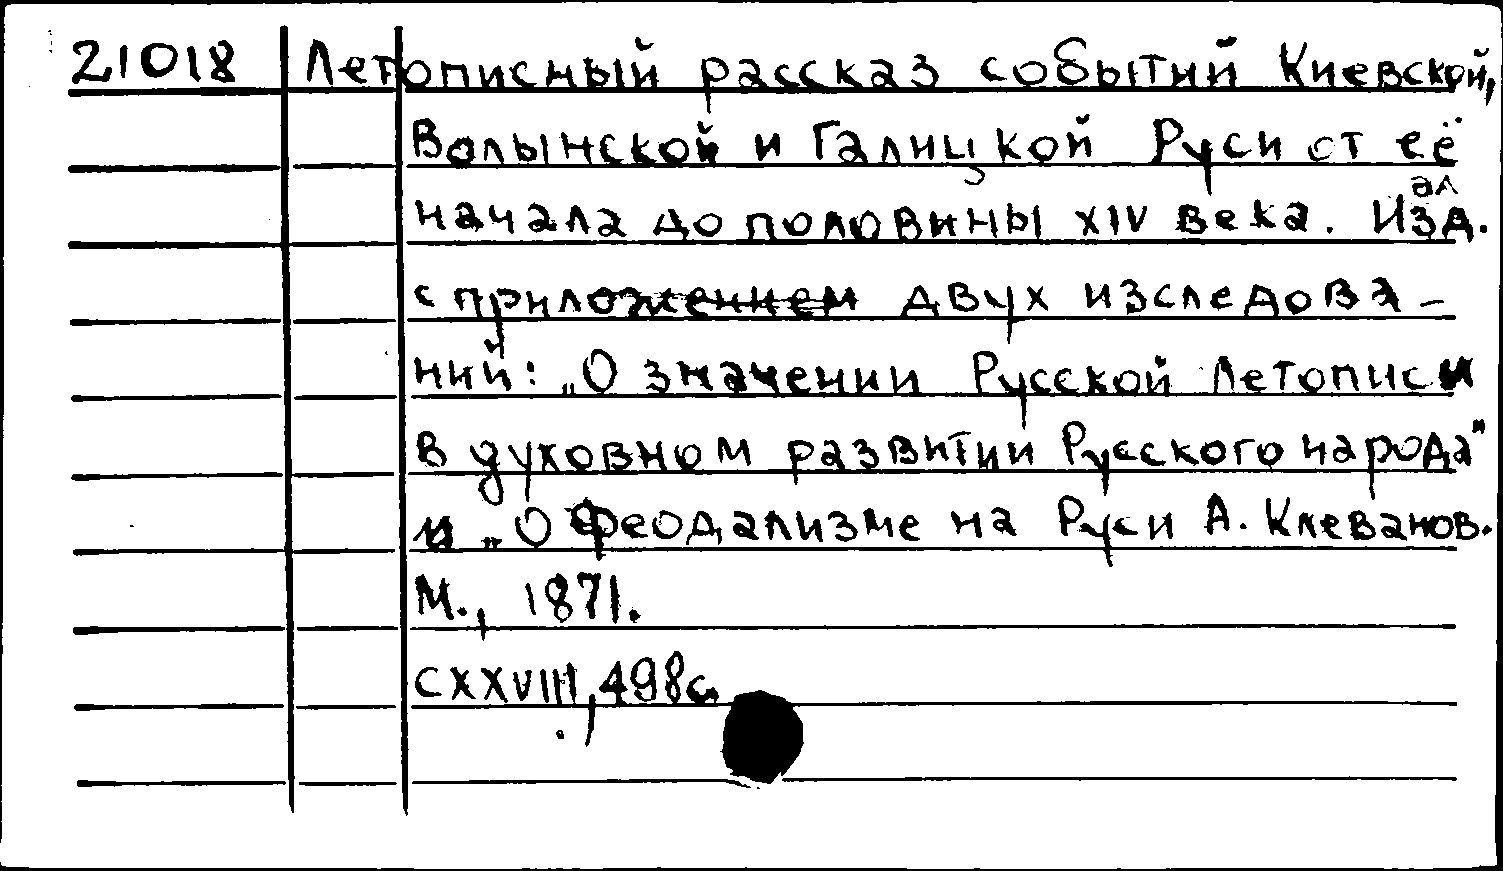 21018 Летописный рассказ событий Киевской,
Волынской и Галицкой Руси от её
начала до половины XIV века. Издал.
с приложением двух изследова-
ний: „О значении Русской Летописи
в духовном развитии Русского народа"
и „О феодализме на Руси А. Клеванов.
М., 1871.
CXXVIII, 498с.